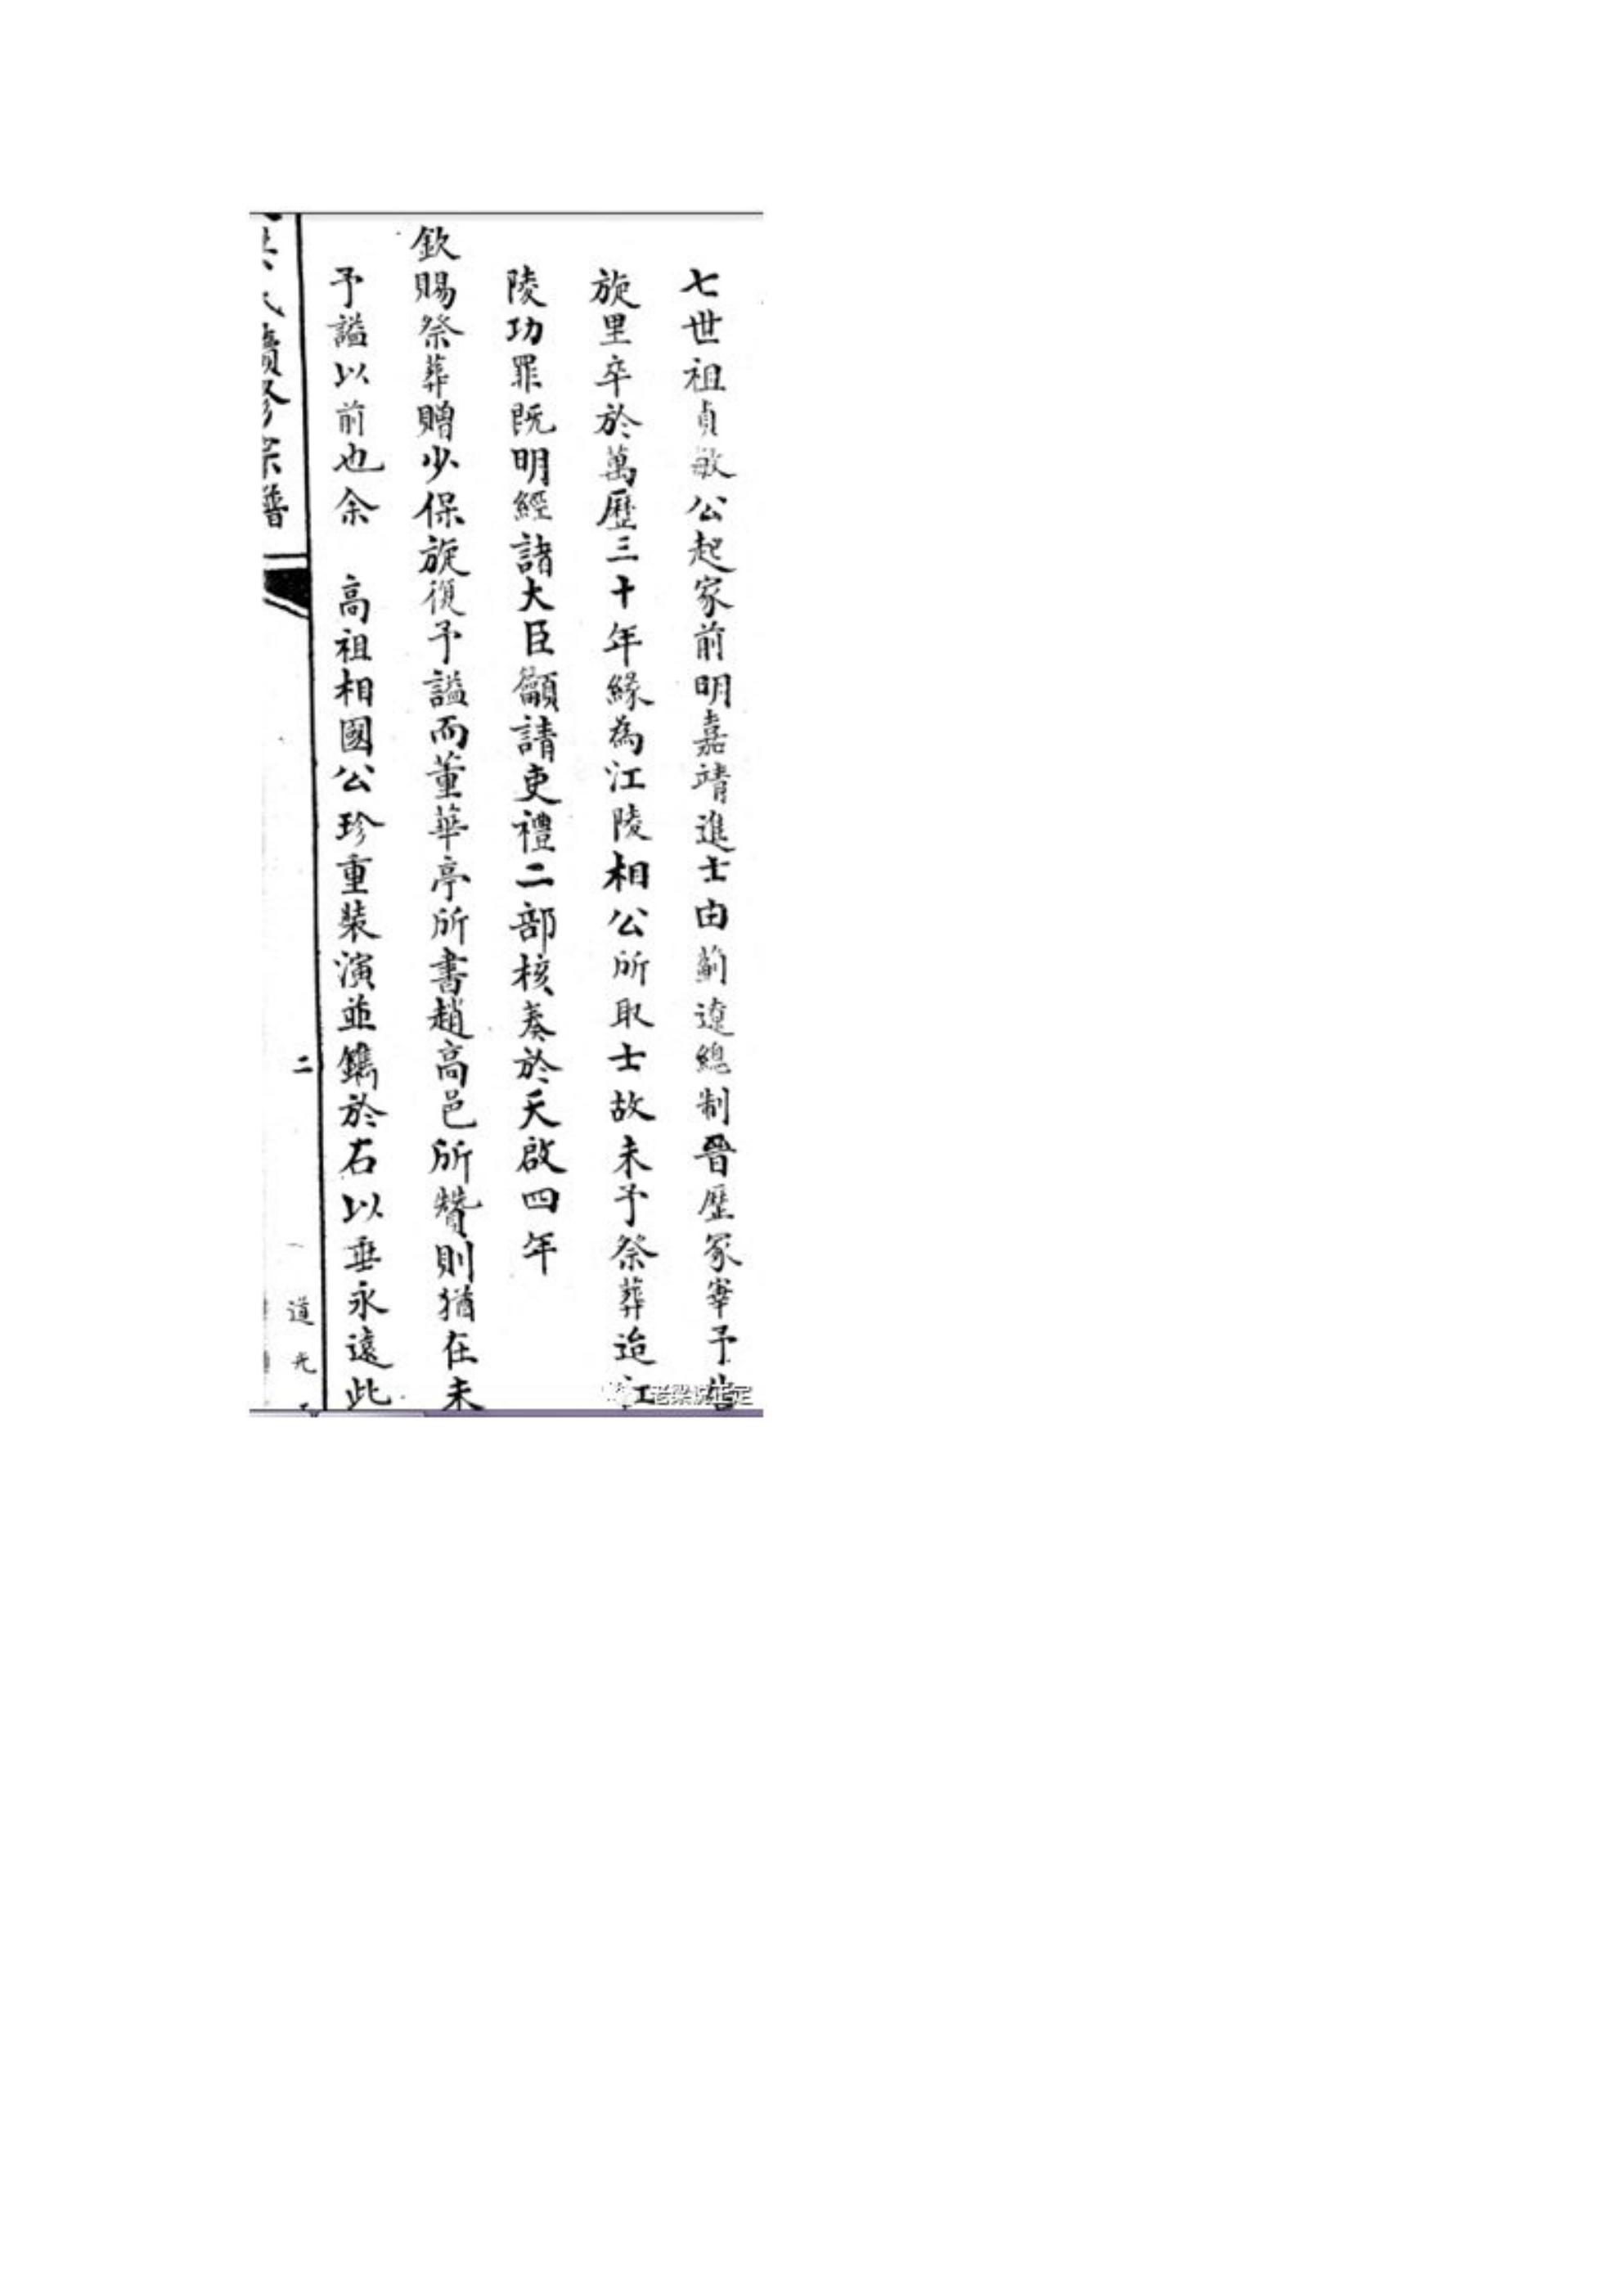 七世祖貞敏公起家前明嘉靖進士由薊遼總制晉歷冢宰予告
旋里卒於萬歷三十年緣為江陵相公所取士故未予祭葬迨江
陵功罪既明經諸大臣籲請吏禮二部核奏於天啟四年
欽賜祭葬贈少保旋復予謚而董華亭所書趙高邑所贊則猶在未
予謚以前也余 高祖相國公珍重裝潢並鐫於石以垂永遠此
氏續修宗譜
二
道光
老梁說正定